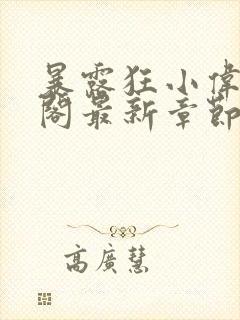 暴露狂小偉
閣最新章節
高廣慧